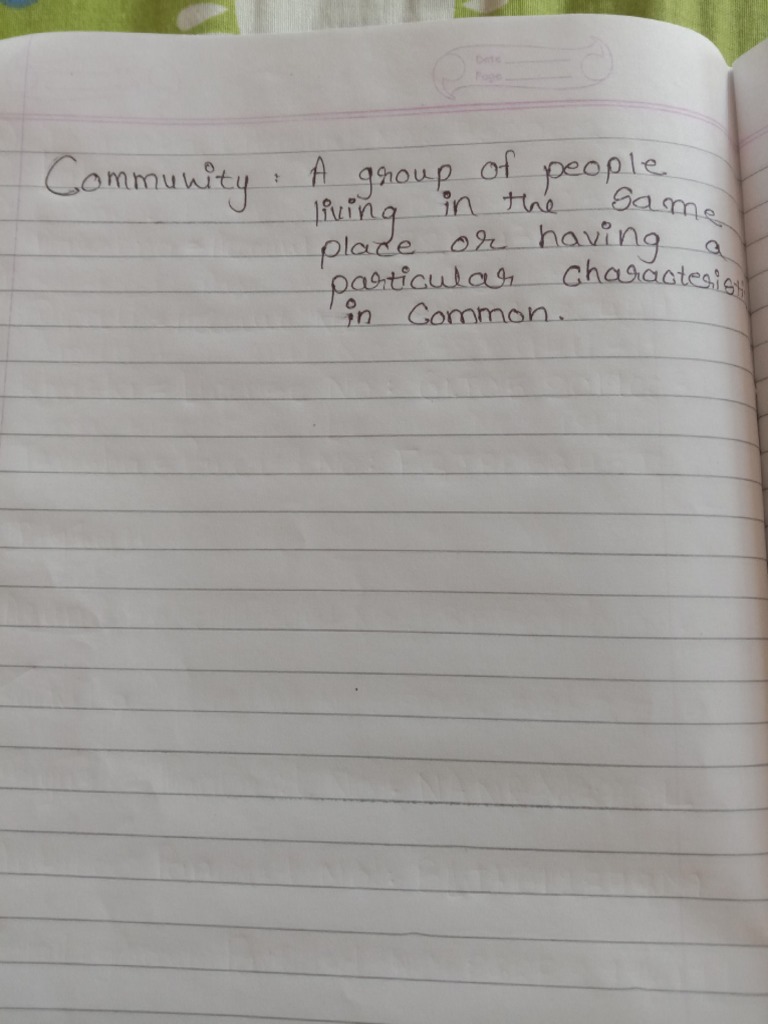 Date
Page
Community : A group of people
living in the same
place or having a
particular characterist
in Common.